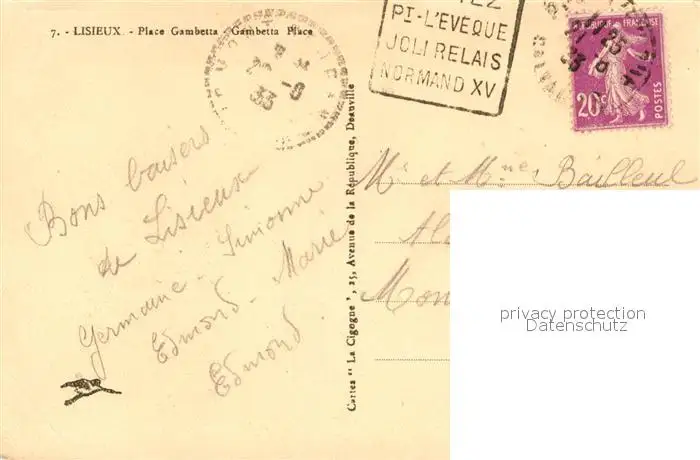 7. - LISIEUX - Place Gambetta - Gambetta Place
PI-L'EVEQUE
JOLI RELAIS
NORMAND XV
REPUBLIQUE FRANÇAISE
20c
POSTES
Bons baisers
de Lisieux
Germaine - Simonne
Edmond - Marie
Edmond
Cartes " La Cigogne ", 25, Avenue de la République, Deauville
Mr et Mme Bailleul
privacy protection
Datenschutz